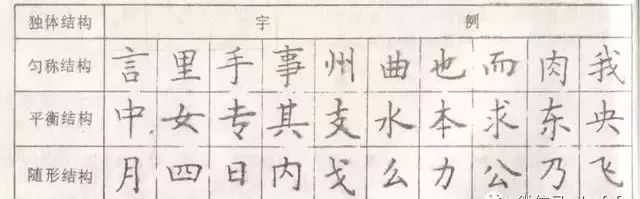 独体结构 字例
匀称结构 言里手事州曲也而肉我
平衡结构 中女专其支水本求东央
随形结构 月四日内戈么力公乃飞